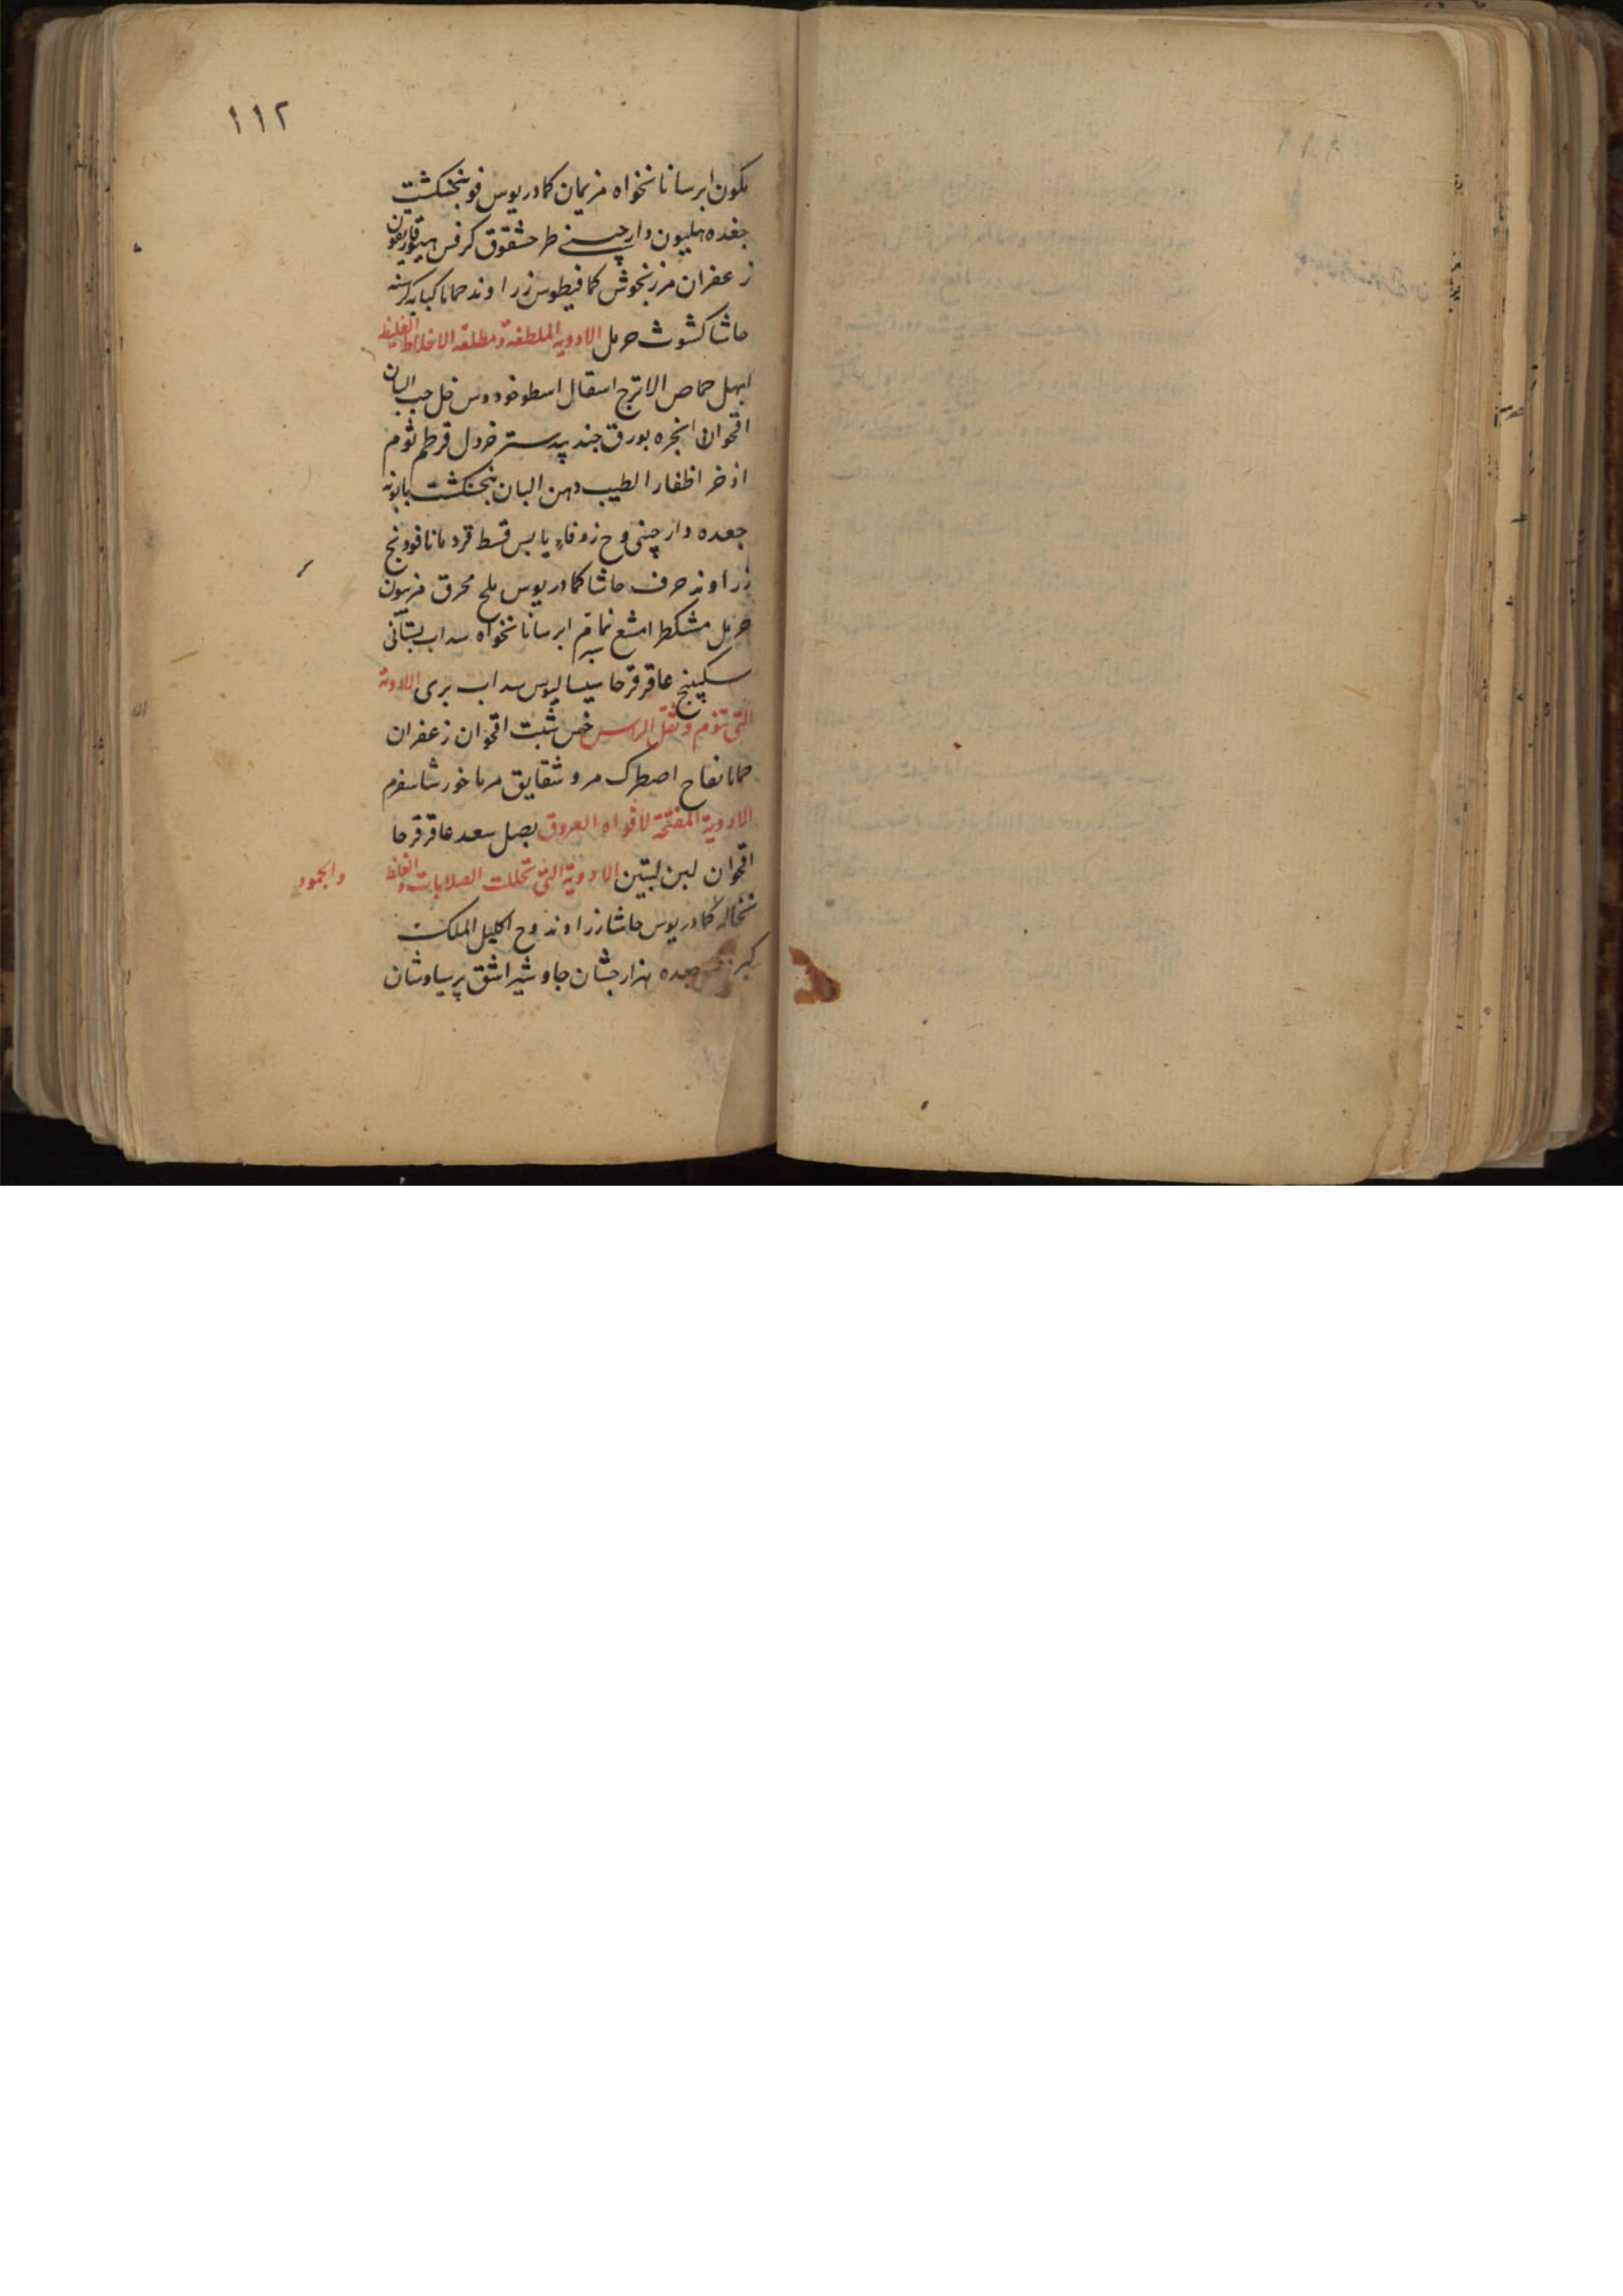 ١١٢
بكون ابرسا نانخواه فریمان كمادریوس فو بنجنكشت
جعده هلیون دارچینے طرحشقوق كرفس هیوفاریقون
زعفران مرزنجوش كمافیطوس زراوند حماما كبابه كرسنه
حاشا كشوث حرمل الادویة الملطفة ومطلقة الاخلاط الغلیظ
ابهل حماض الاترج اسقال اسطوخودوس خل حب البان
اقحوان انجره بورق جندبیدستر خردل قرطم ثوم
اذخر اظفار الطیب دهن البان بنجنكشت بابونه
جعده دارچینی وج زوفاء یابس قسط قردمانا فودنج
زراوند حرف حاشا كمادریوس ملح محرق فربیون
حرمل مشكطرامشع نمام ابرسا نانخواه سداب بستانی
سكبینج عاقرقرحا سیسالیوس سداب بری الادویة
التی تنوم وتثقل الراس خس شبت اقحوان زعفران
حماما تفاح اصطرك مرو شقایق مرماخور شاسفرم
الادویة المفتحة لافواه العروق بصل سعد عاقرقرحا
اقحوان لبن لبتین الادویة التی تحللت الصلابات والغلظ
والجمود
نخاله كمادریوس حاشا زراوند وج اكلیل الملك
كبر جعده هزارجشان جاوشیر اشق پرسیاوشان